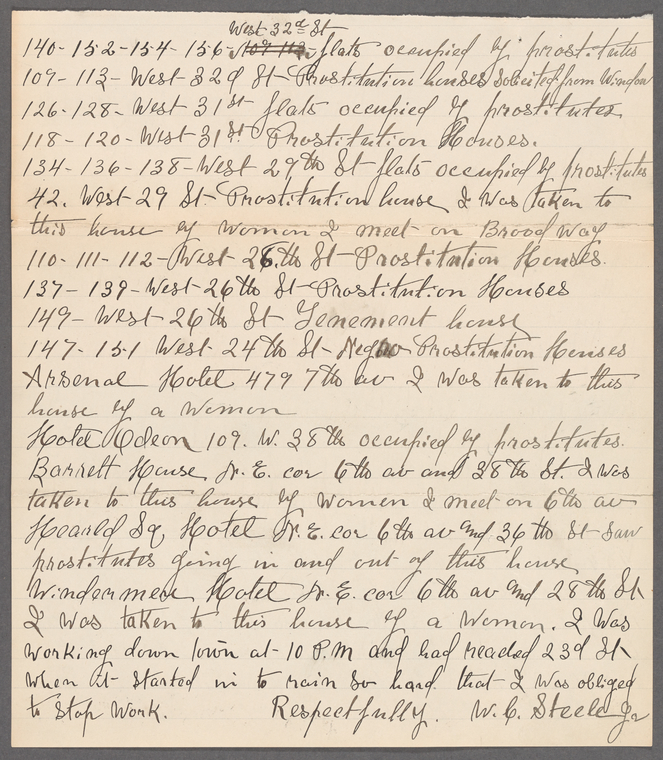 West 32d St
140-152-154-156- 109-113- flats occupied by prostitutes
109-113- West 32d St Prostitution houses Solicited from Window
126-128- West 31st flats occupied by prostitutes
118-120- West 31st Prostitution Houses.
134-136-138- West 29th St flats occupied by prostitutes
42. West 29 St- Prostitution house I Was taken to
this house by Women I meet on Broad Way
110-111-112- West 26th St- Prostitution Houses.
137-139- West 26th St Prostitution Houses
149- West 26th St Tenement house
147-151 West 24th St- Negro Prostitution Houses
Arsenal Hotel 479 7th av I Was taken to this
house by a Woman
Hotel Odeon 109. W. 38th occupied by prostitutes.
Barrett House N.E. cor 6th av and 38th St. I was
taken to this house by Women I meet on 6th av
Hearld Sq, Hotel N.E. cor 6th av and 36th St Saw
prostitutes going in and out of this house
Windermen Hotel N.E. cor 6th av and 28th St
I Was taken to this house by a Woman. I Was
Working down town at 10 P.M and had reached 23d St
When it started in to rain So hard that I was obliged
to Stop Work. Respectfully. W.C. Steele Jr